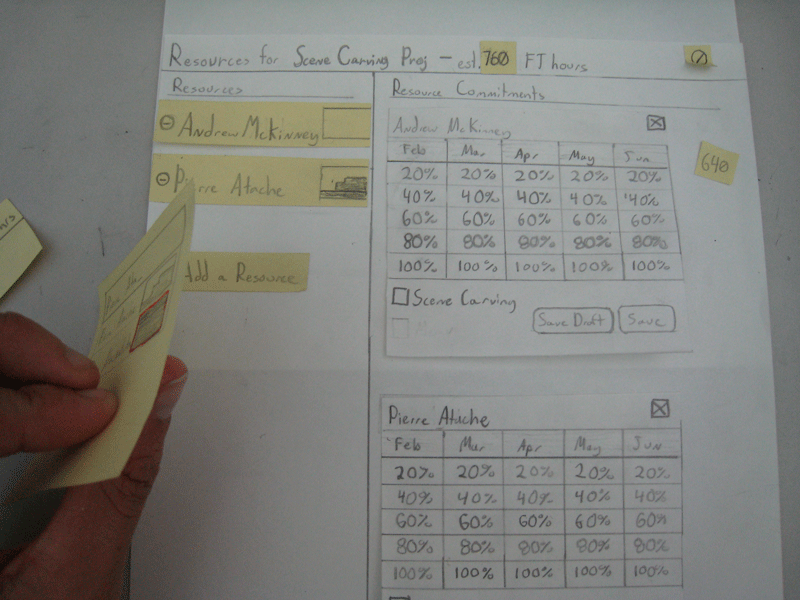 Resources for Scene Carving Proj – est. 760 FT hours
Resources
Andrew McKinney
Pierre Atache
Add a Resource
Resource Commitments
Andrew McKinney
Feb Mar Apr May Jun
20% 20% 20% 20% 20%
40% 40% 40% 40% 40%
60% 60% 60% 60% 60%
80% 80% 80% 80% 80%
100% 100% 100% 100% 100%
Scene Carving
Save Draft Save
640
Pierre Atache
Feb Mar Apr May Jun
20% 20% 20% 20% 20%
40% 40% 40% 40% 40%
60% 60% 60% 60% 60%
80% 80% 80% 80% 80%
100% 100% 100% 100% 100%